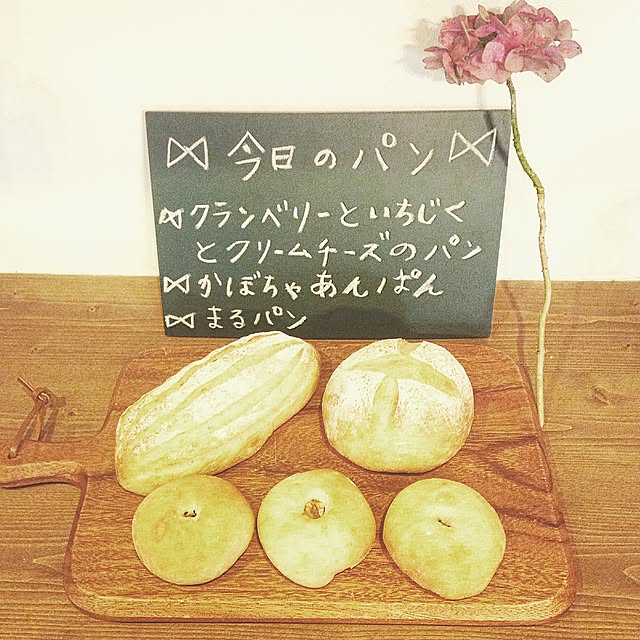 今日のパン
クランベリーといちじく
とクリームチーズのパン
かぼちゃあんぱん
まるパン